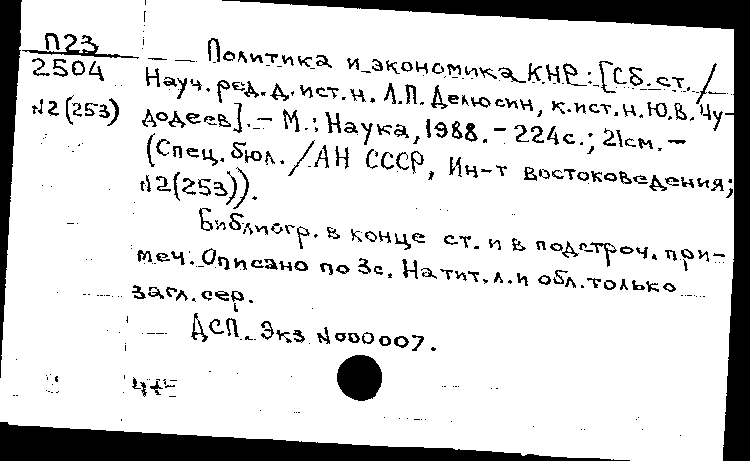 П23
2504
N2(253)
Политика и экономика КНР: [Сб. ст. /
Науч. ред. д. ист. н. Л.П. Делюсин, к. ист. н. Ю.В. Чу-
додеев]. - М.: Наука, 1988. - 224с.; 21см. -
(Спец. бюл. / АН СССР, Ин-т востоковедения;
N2(253)).
Библиогр. в конце ст. и в подстроч. при-
меч. Описано по 3с. На тит. л. и обл. только
загл. сер.
ДСП. Экз N000007.